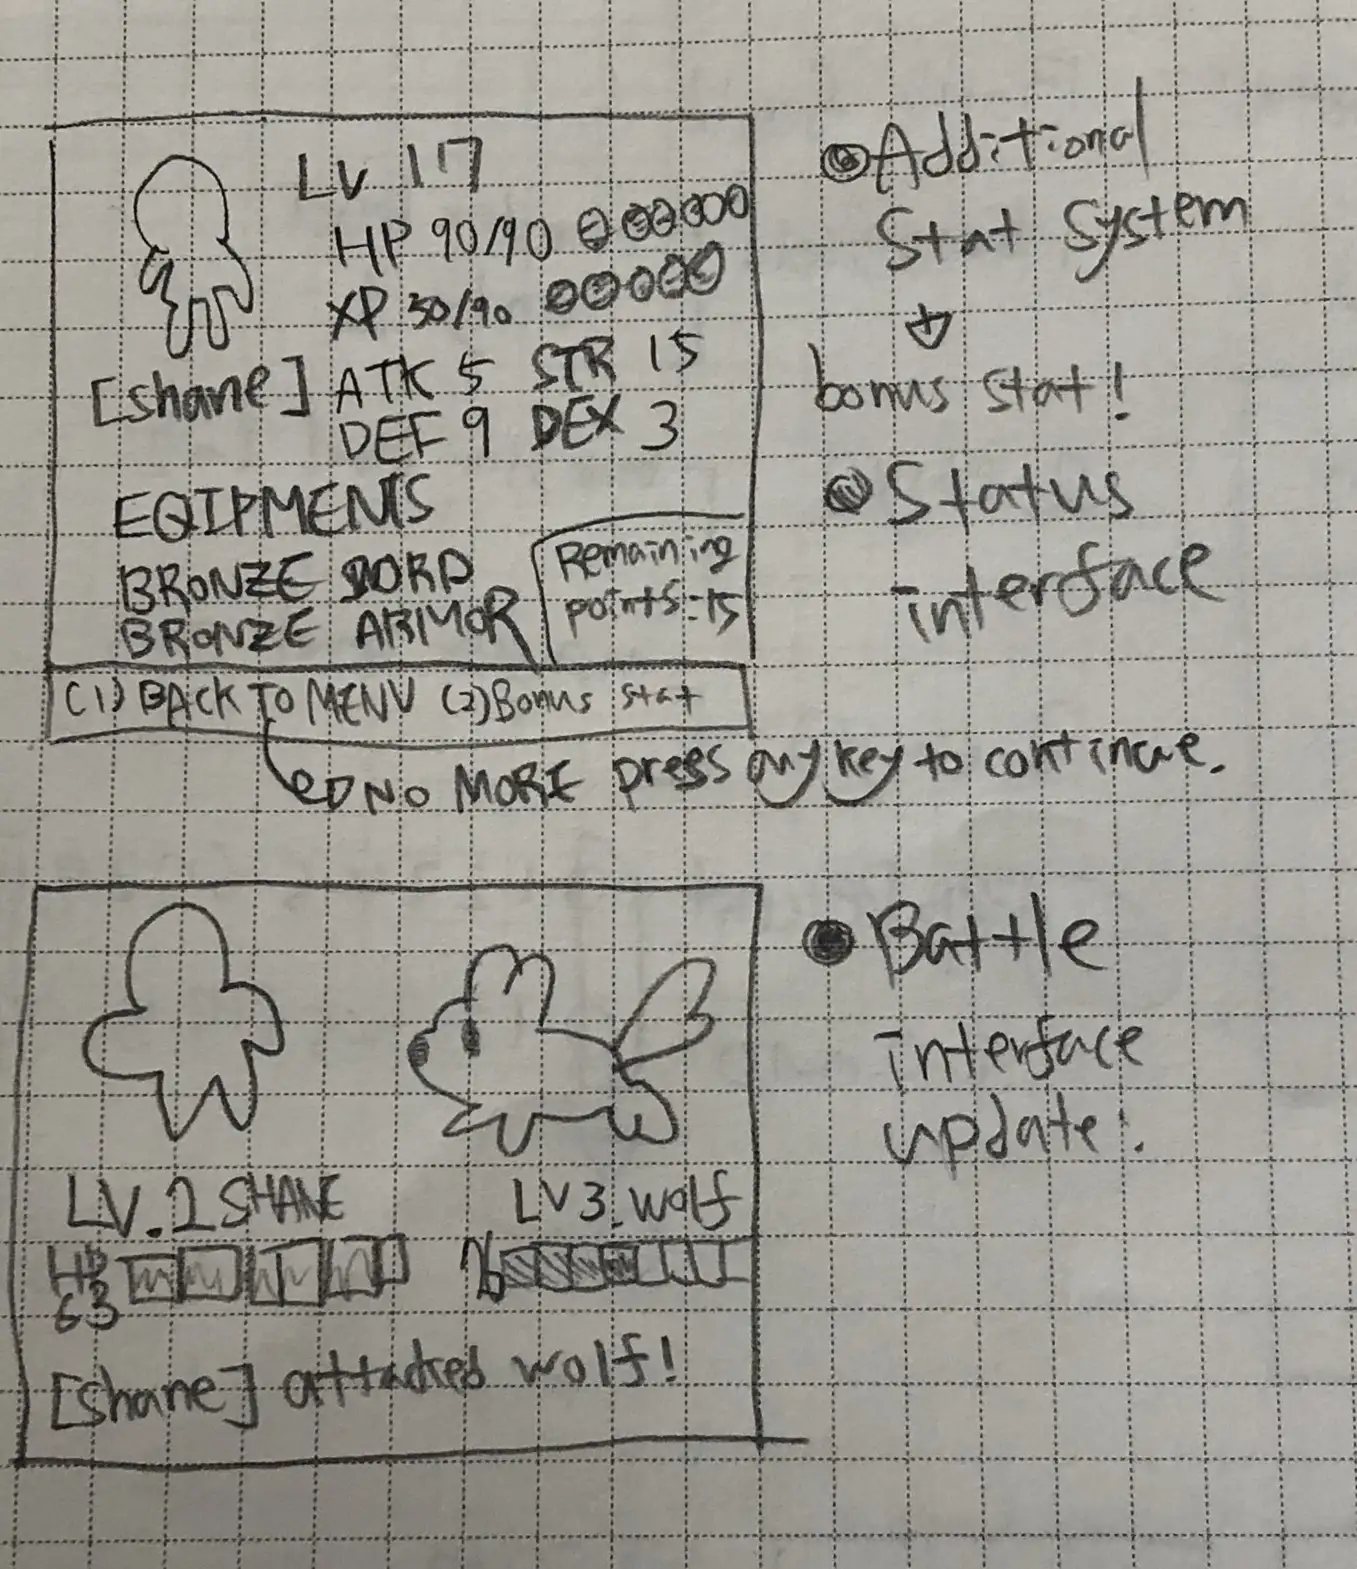 LV 17
HP 90/90
XP 30/90
[shane] ATK 5 STR 15
DEF 9 DEX 3
EQIPMENTS
BRONZE SORD
BRONZE ARMOR
Remaining
points:15
(1) BACK TO MENU (2) Bonus stat
NO MORE press any key to continue.
Additional
Stat System
bonus stat!
Status
interface
LV.2 SHANE
LV3.wolf
HP
63
76
[shane] attacked wolf!
Battle
interface
update!